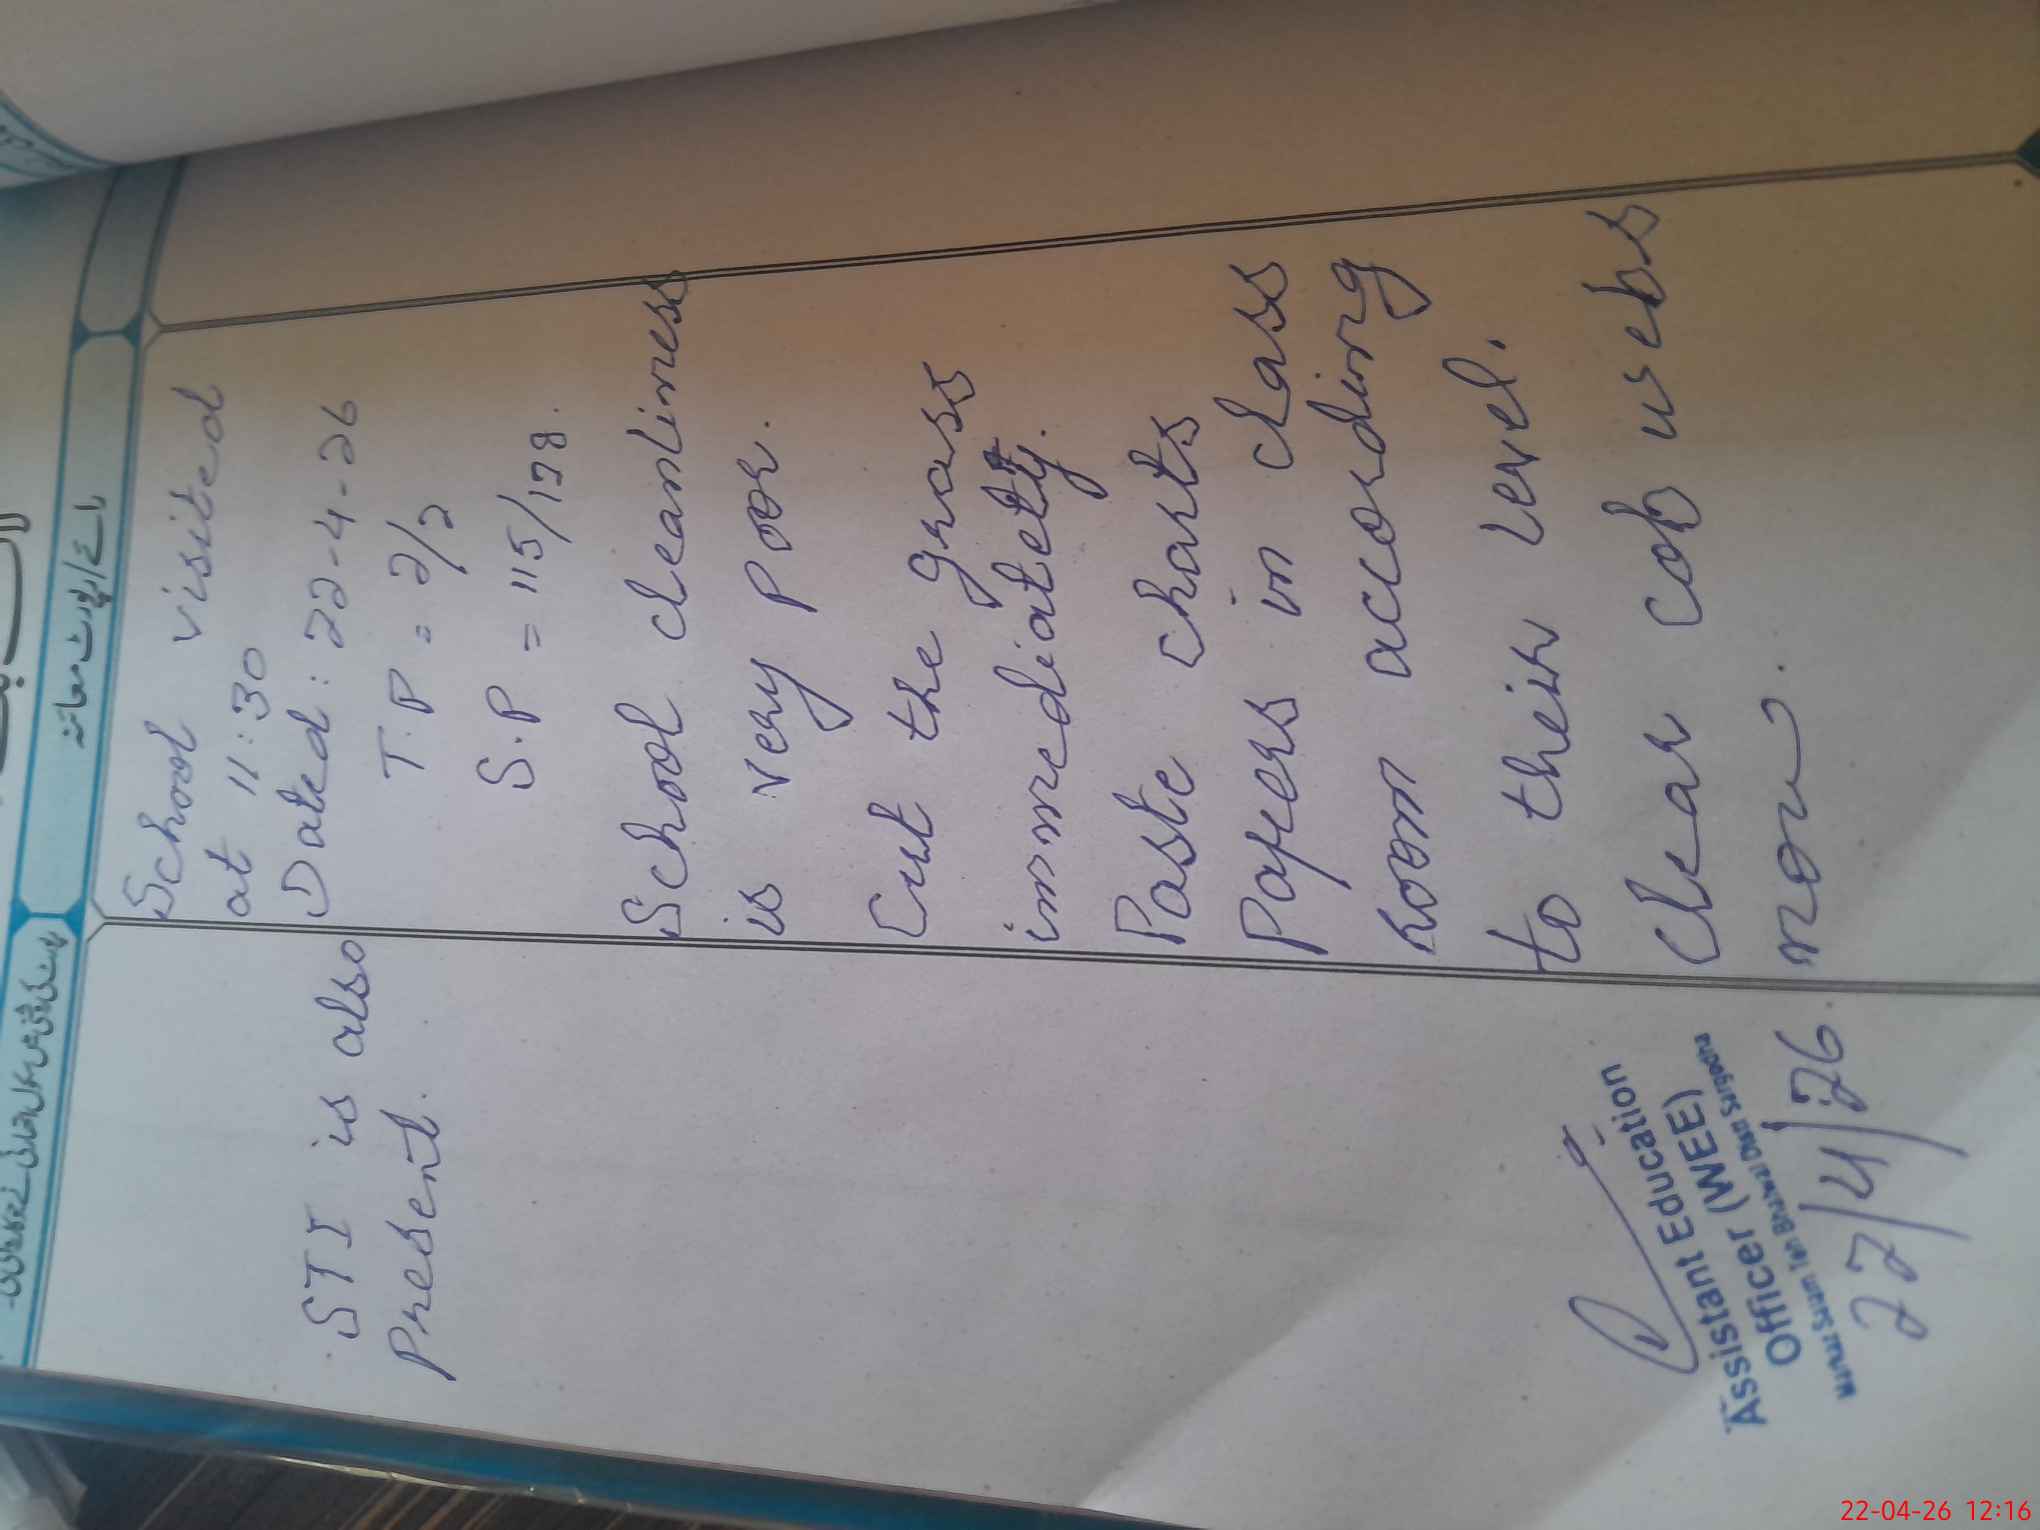 رائے/رپورٹ معائنہ
School visited
at 11:30
Dated: 22-4-26
T.P = 2/2
S.P = 115/138.
School cleanliness
is very poor.
Cut the grass
immediately.
Paste charts
Papers in class
room according
to their level.
Clear cob webs
now.
STI is also
Present.
Assistant Education
Officer (WEE)
Salam Teh Bhalwal Distt Sargodha
22/4/26.
22-04-26 12:16